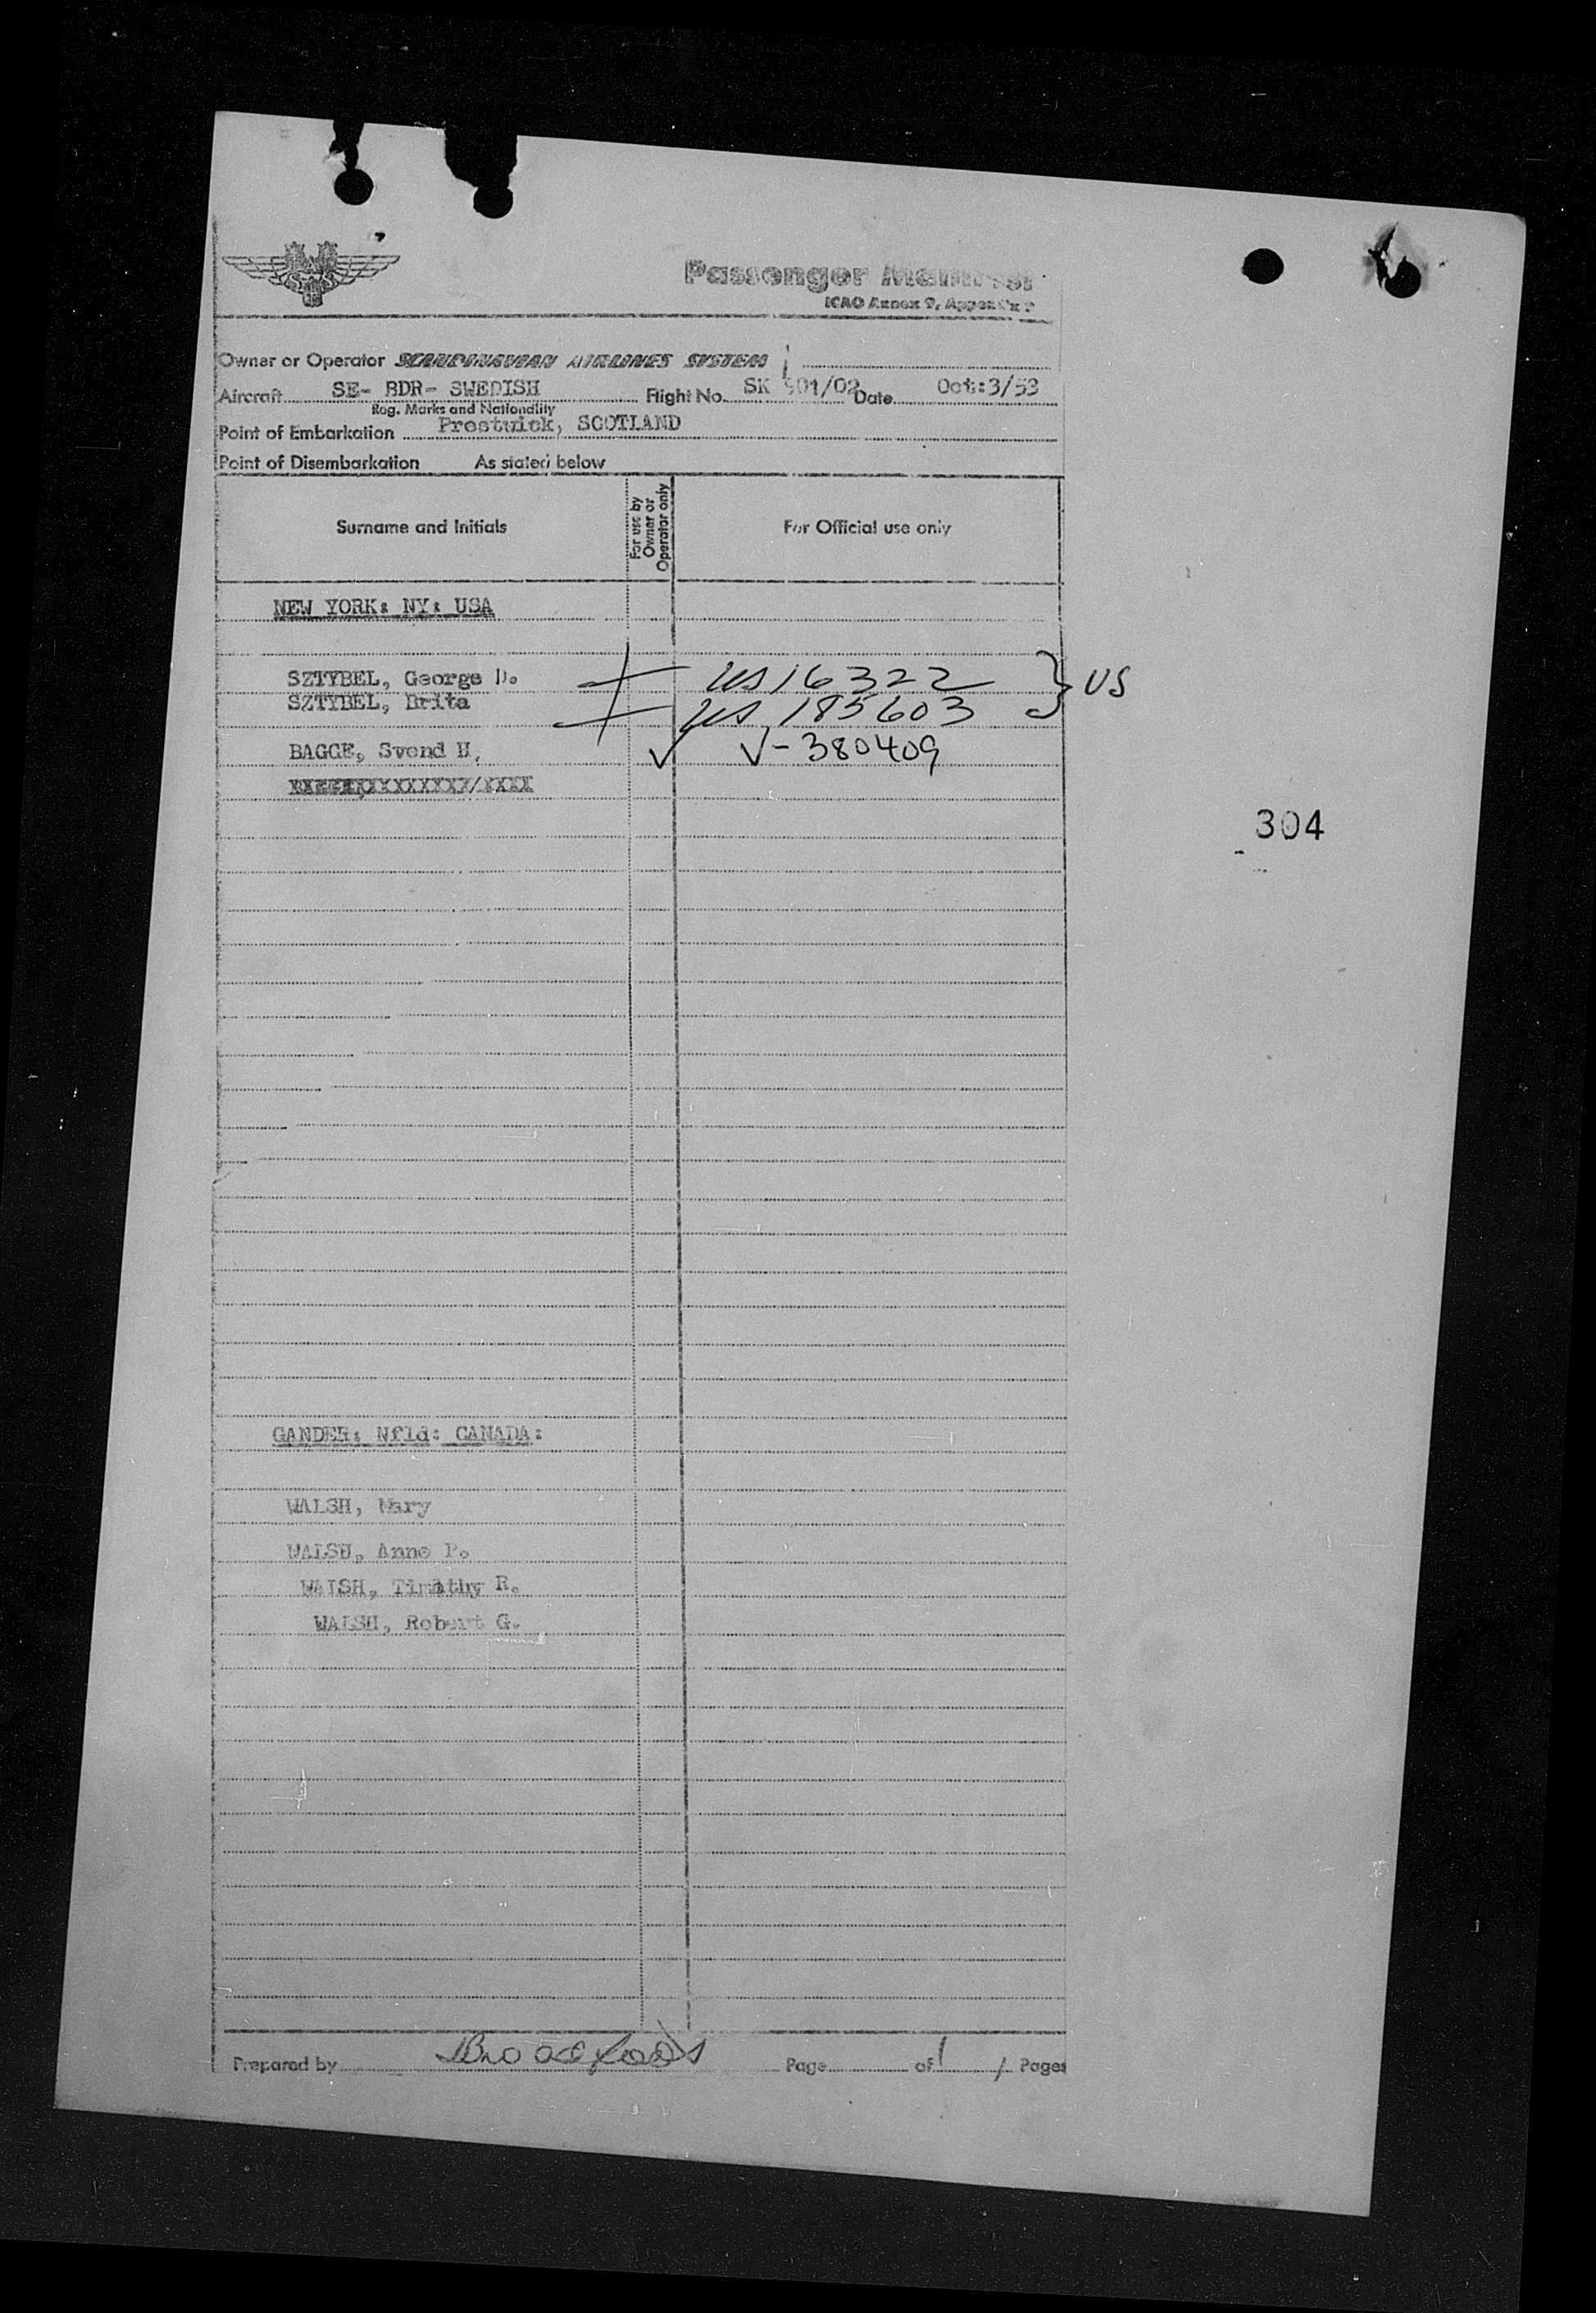 Passenger Manifest
ICAO Annex 9, Appendix 2
Owner or Operator SCANDINAVIAN AIRLINES SYSTEM
Aircraft SE- BDR- SWEDISH Flight No. SK 901/02 Date Oct:3/53
Reg. Marks and Nationality
Point of Embarkation Prestwick, SCOTLAND
Point of Disembarkation As stated below
Surname and Initials
For use by
Owner or
Operator only
For Official use only
NEW YORK: NY: USA
SZTYBEL, George D. US 16322 } US
SZTYBEL, Brita US 185603
BAGGE, Svend H. ✓ V-380409
304
GANDER: Nfld: CANADA:
WALSH, Mary
WALSH, Anne P.
WALSH, Timothy R.
WALSH, Robert G.
Prepared by Page of 1 / Pages